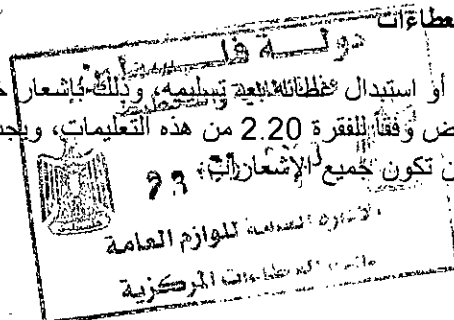 عطاءات
دولة فلسطين
أو استبدال عطائه بعد تسليمه، وذلك بإشعار
وفقاً للفقرة 2.20 من هذه التعليمات، ويجب
تكون جميع الإشعارات
23
الادارة العامة للوازم العامة
العطاءات المركزية